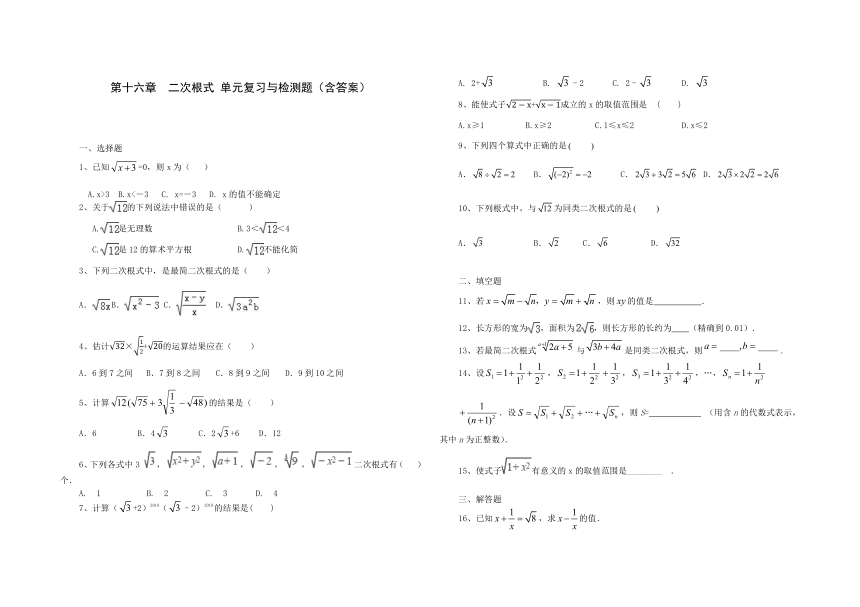 第十六章　二次根式 单元复习与检测题（含答案）
一、选择题
1、已知√(x+3)=0，则 x 为（　　）
A.x>3 B.x<-3 C. x=-3 D. x 的值不能确定
2、关于√12的下列说法中错误的是（　　）
A.√12是无理数 B.3＜√12＜4
C.√12是 12 的算术平方根 D.√12不能化简
3、下列二次根式中，是最简二次根式的是（　　）
A．√8x B．√(x²－3) C．√((x－y)/x) D．√(3a²b)
4、估计√32×√(1/2)+√20的运算结果应在（　　）
A．6 到 7 之间 B．7 到 8 之间 C．8 到 9 之间 D．9 到 10 之间
5、计算√12(√75+3√(1/3)－√48)的结果是（　　）
A．6 B．4√3 C．2√3+6 D．12
6、下列各式中 3√3，√(x²+y²)，√(a+1)，√−2，∛9，√(−x²−1) 二次根式有（　　）
个．
A. 1 B. 2 C. 3 D. 4
7、计算（√3+2）²⁰¹⁹（√3﹣2）²⁰¹⁸的结果是(　　)
A. 2+√3 B. √3﹣2 C. 2﹣√3 D. √3
8、能使式子√(2－x)+√(x－1)成立的 x 的取值范围是 （　　）
A.x≥1 B.x≥2 C.1≤x≤2 D.x≤2
9、下列四个算式中正确的是(　　)
A．√8÷√2=2 B．√((−2)²)=−2 C．2√3+3√2=5√6 D．2√3×2√2=2√6
10、下列根式中，与√12为同类二次根式的是(　　)
A．√3 B．√2 C．√6 D．√32
二、填空题
11、若x=√m−√n，y=√m+√n，则 xy 的值是________．
12、长方形的宽为√3，面积为2√6，则长方形的长约为____（精确到 0.01）．
13、若最简二次根式 ᵃ⁺¹√(2a+5) 与 √(3b+4a) 是同类二次根式，则a=____,b=____．
14、设S₁=1+1/1²+1/2²，S₂=1+1/2²+1/3²，S₃=1+1/3²+1/4²，…，Sₙ=1+1/n²
+1/(n+1)²．设S=√S₁+√S₂+…+√Sₙ，则 S=__________（用含 n 的代数式表示，
其中 n 为正整数）．
15、使式子√(1+x²)有意义的 x 的取值范围是________．
三、解答题
16、已知x+1/x=√8，求x−1/x的值．